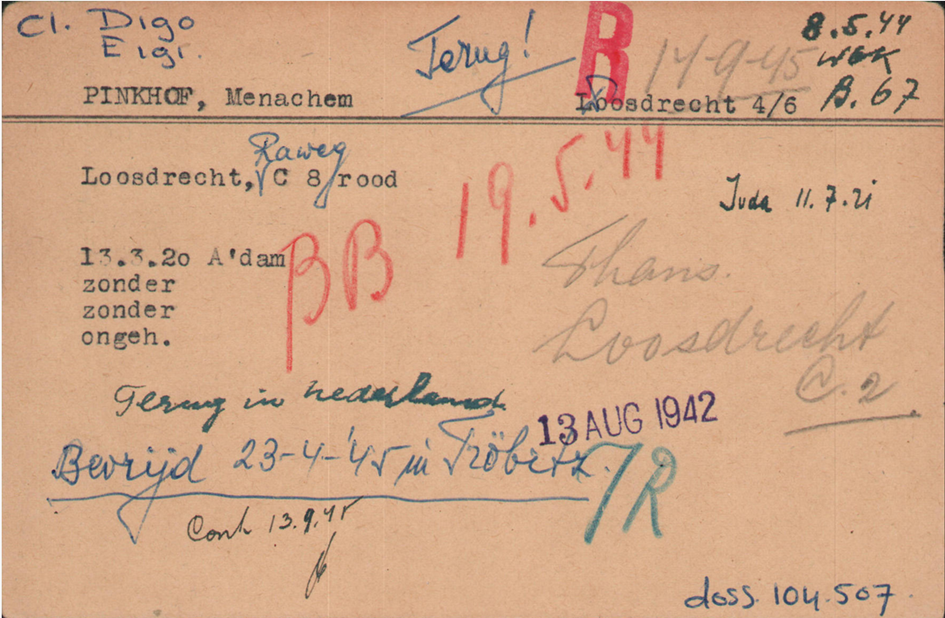 Cl. Digo
Eigr.
Terug!
R
14-9-45
8.5.44
WBK
B. 67
PINKHOF, Menachem
Loosdrecht 4/6
Raweg
Loosdrecht, C 8 rood
19.5.44
Juda 11.7.21
13.3.20 A'dam
BB
zonder
zonder
ongeh.
Thans.
Loosdrecht
C.2
Terug in Nederland
13 AUG 1942
Bevrijd 23-4-'45 in Tröbitz.
TR
13.9.45
doss. 104.507